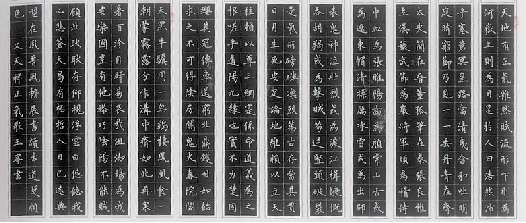 天地有正氣雜然賦流形下則為
河嶽上則為日星於人曰浩然沛
乎塞蒼冥皇路當清夷含和吐明
庭時窮節乃見一一垂丹青在齊
太史簡在晉董狐筆在秦張良椎
在漢蘇武節為嚴將軍頭為嵇侍
中血為張睢陽齒為顏常山舌或
為遼東帽清操厲冰雪或為出師
表鬼神泣壯烈或為渡江楫慷慨
吞胡羯或為擊賊笏逆豎頭破裂
是氣所磅礴凜烈萬古存當其貫
日月生死安足論地維賴以立天
柱賴以尊三綱實係命道義為之
根嗟予遘陽九隸也實不力楚囚
纓其冠傳車送窮北鼎鑊甘如飴
求之不可得陰房闃鬼火春院閟
天黑牛驥同一皂雞棲鳳凰食一
朝蒙霧露分作溝中瘠如此再寒
暑百沴自辟易哀哉沮洳場為我
安樂國豈有他繆巧陰陽不能賊
顧此耿耿在仰視浮雲白悠悠我
心悲蒼天曷有極哲人日已遠典
型在夙昔風檐展書讀古道照顏
色 文天祥正氣歌 書